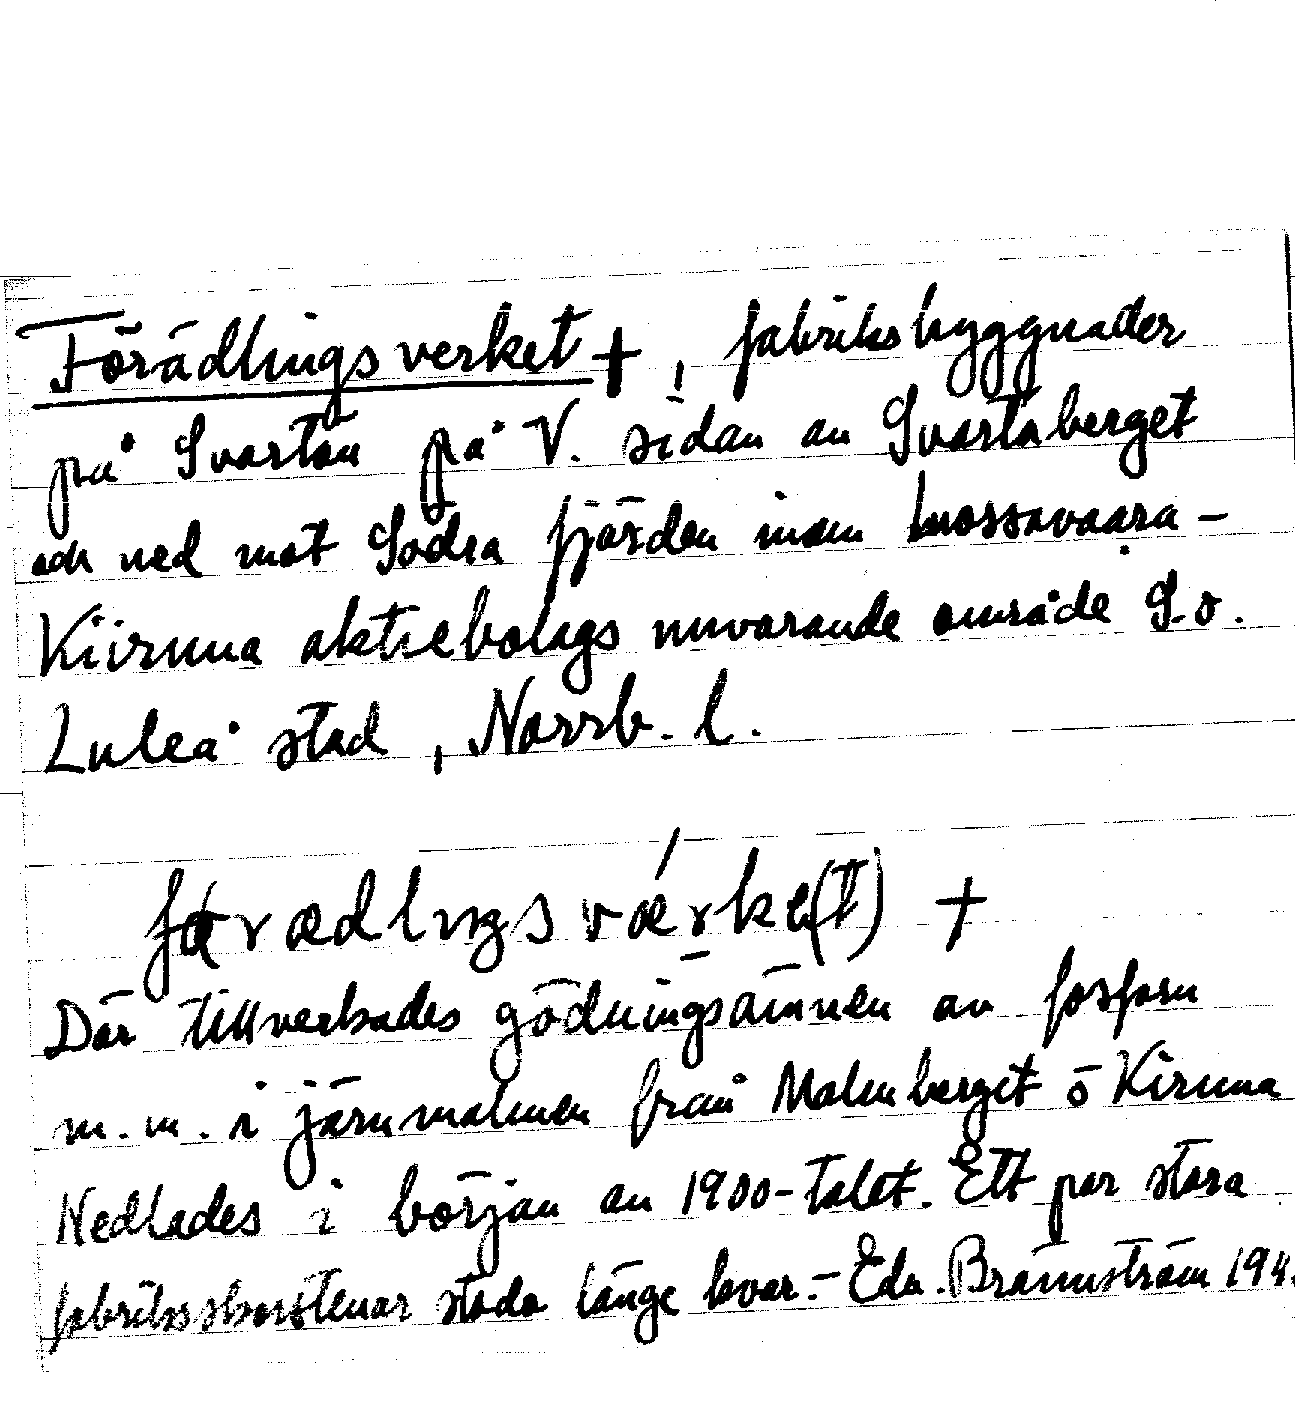 Förädlingsverket + , fabriksbyggnader
på Svartön på V. sidan av Svartöberget
och ned mot Södra fjärden inom Luossavaara-
Kiiruna aktiebolags nuvarande område S.o.
Luleå stad, Norrb. l.
förædlıŋgsværke(t) +
Där tillverkades gödningsämnen av fosforn
m.m. i järnmalmen från Malmberget o Kiruna
Nedlades i början av 1900-talet. Ett par stora
fabriksskorstenar stodo länge kvar. - Edv. Brännström